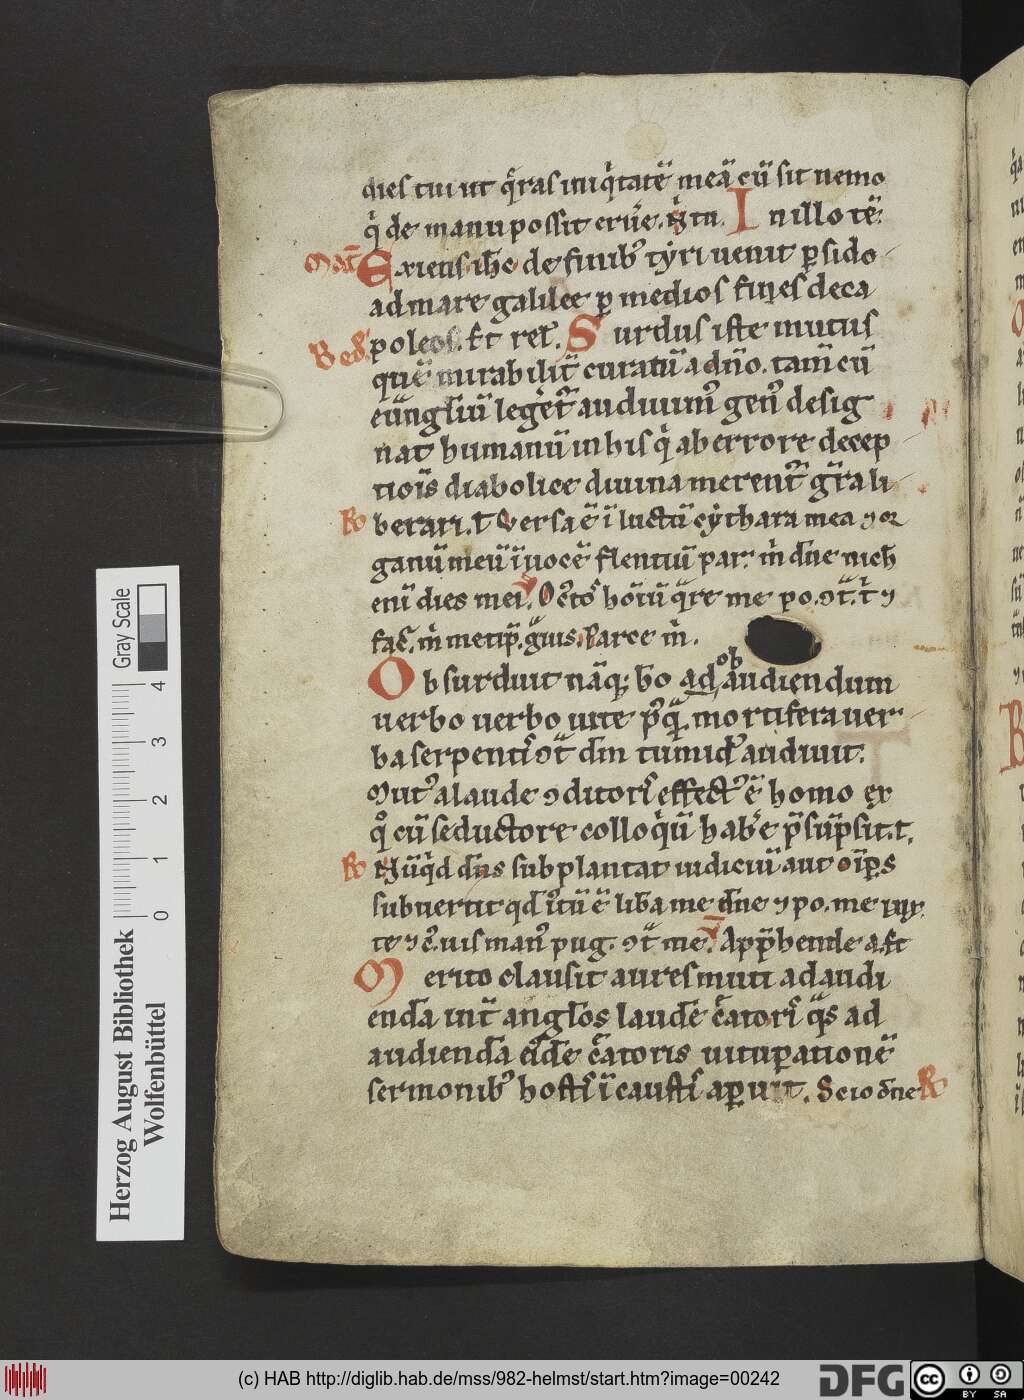 dies tui ut q̄ras iniq̇tatē meā cū sit nemo
q̇ de manu possit erūe. N̄ tu. In illo tē.
Mat̄ Exiens ih̄c de finib᷒ tyri uenit ꝑ sido
ad mare galilee ꝑ medios fines deca
Bed̄ poleos. Et ret̄. Surdus iste mutus
quē mirabilit̄ curatū a dn̄o. tam̄ cū
eūngliū leger̄t᷒ audiuim᷒ gen᷒ desig
nat humanū in his q̇ ab errore decep
tiōis diabolice diuina merent᷒ gr̄a li
R berari. t Versa ē ī luctū cythara mea ⁊ or
ganū meū ī uocē flentiū par. m̄ dn̄e nich̄
enī dies mei. hoīū qr̄e me po.
fac̄. m̄ metip̄. gͣuis. Parce m̄.
Obsurduit nāq; ho ad ob audiendum
uerbo uerbo uite p᷒q̄ mortifera uer
ba serpentis ꝯt̄ dm̄ tumid᷒ audiuit.
Mut᷒ a laude ꝯditoris effect᷒ ē homo ex
q̊ cū seductore colloq̇ū habēe p̄sūpsit. t.
R Nūq̇d dn̄s subplantat iudiciū aut oīps
subuertit qd̄ iu᷒tū ē lib̄a me dn̄e ⁊ po. me iux
te ⁊ c᷒. uis man᷒ pug. ꝯt̄ me. V Appͣhende a. et
Merito clausit aures muti ad audi
enda int̄ anglos laudē c̄atoris qͣs ad
audienda eīdē c̄atoris uitupationē
sermonib᷒ hostis īcaustis aꝑuit. Scio dn̄e R
Gray Scale
0 1 2 3 4
Herzog August Bibliothek
Wolfenbüttel
(c) HAB http://diglib.hab.de/mss/982-helmst/start.htm?image=00242
DFG
cc
BY SA